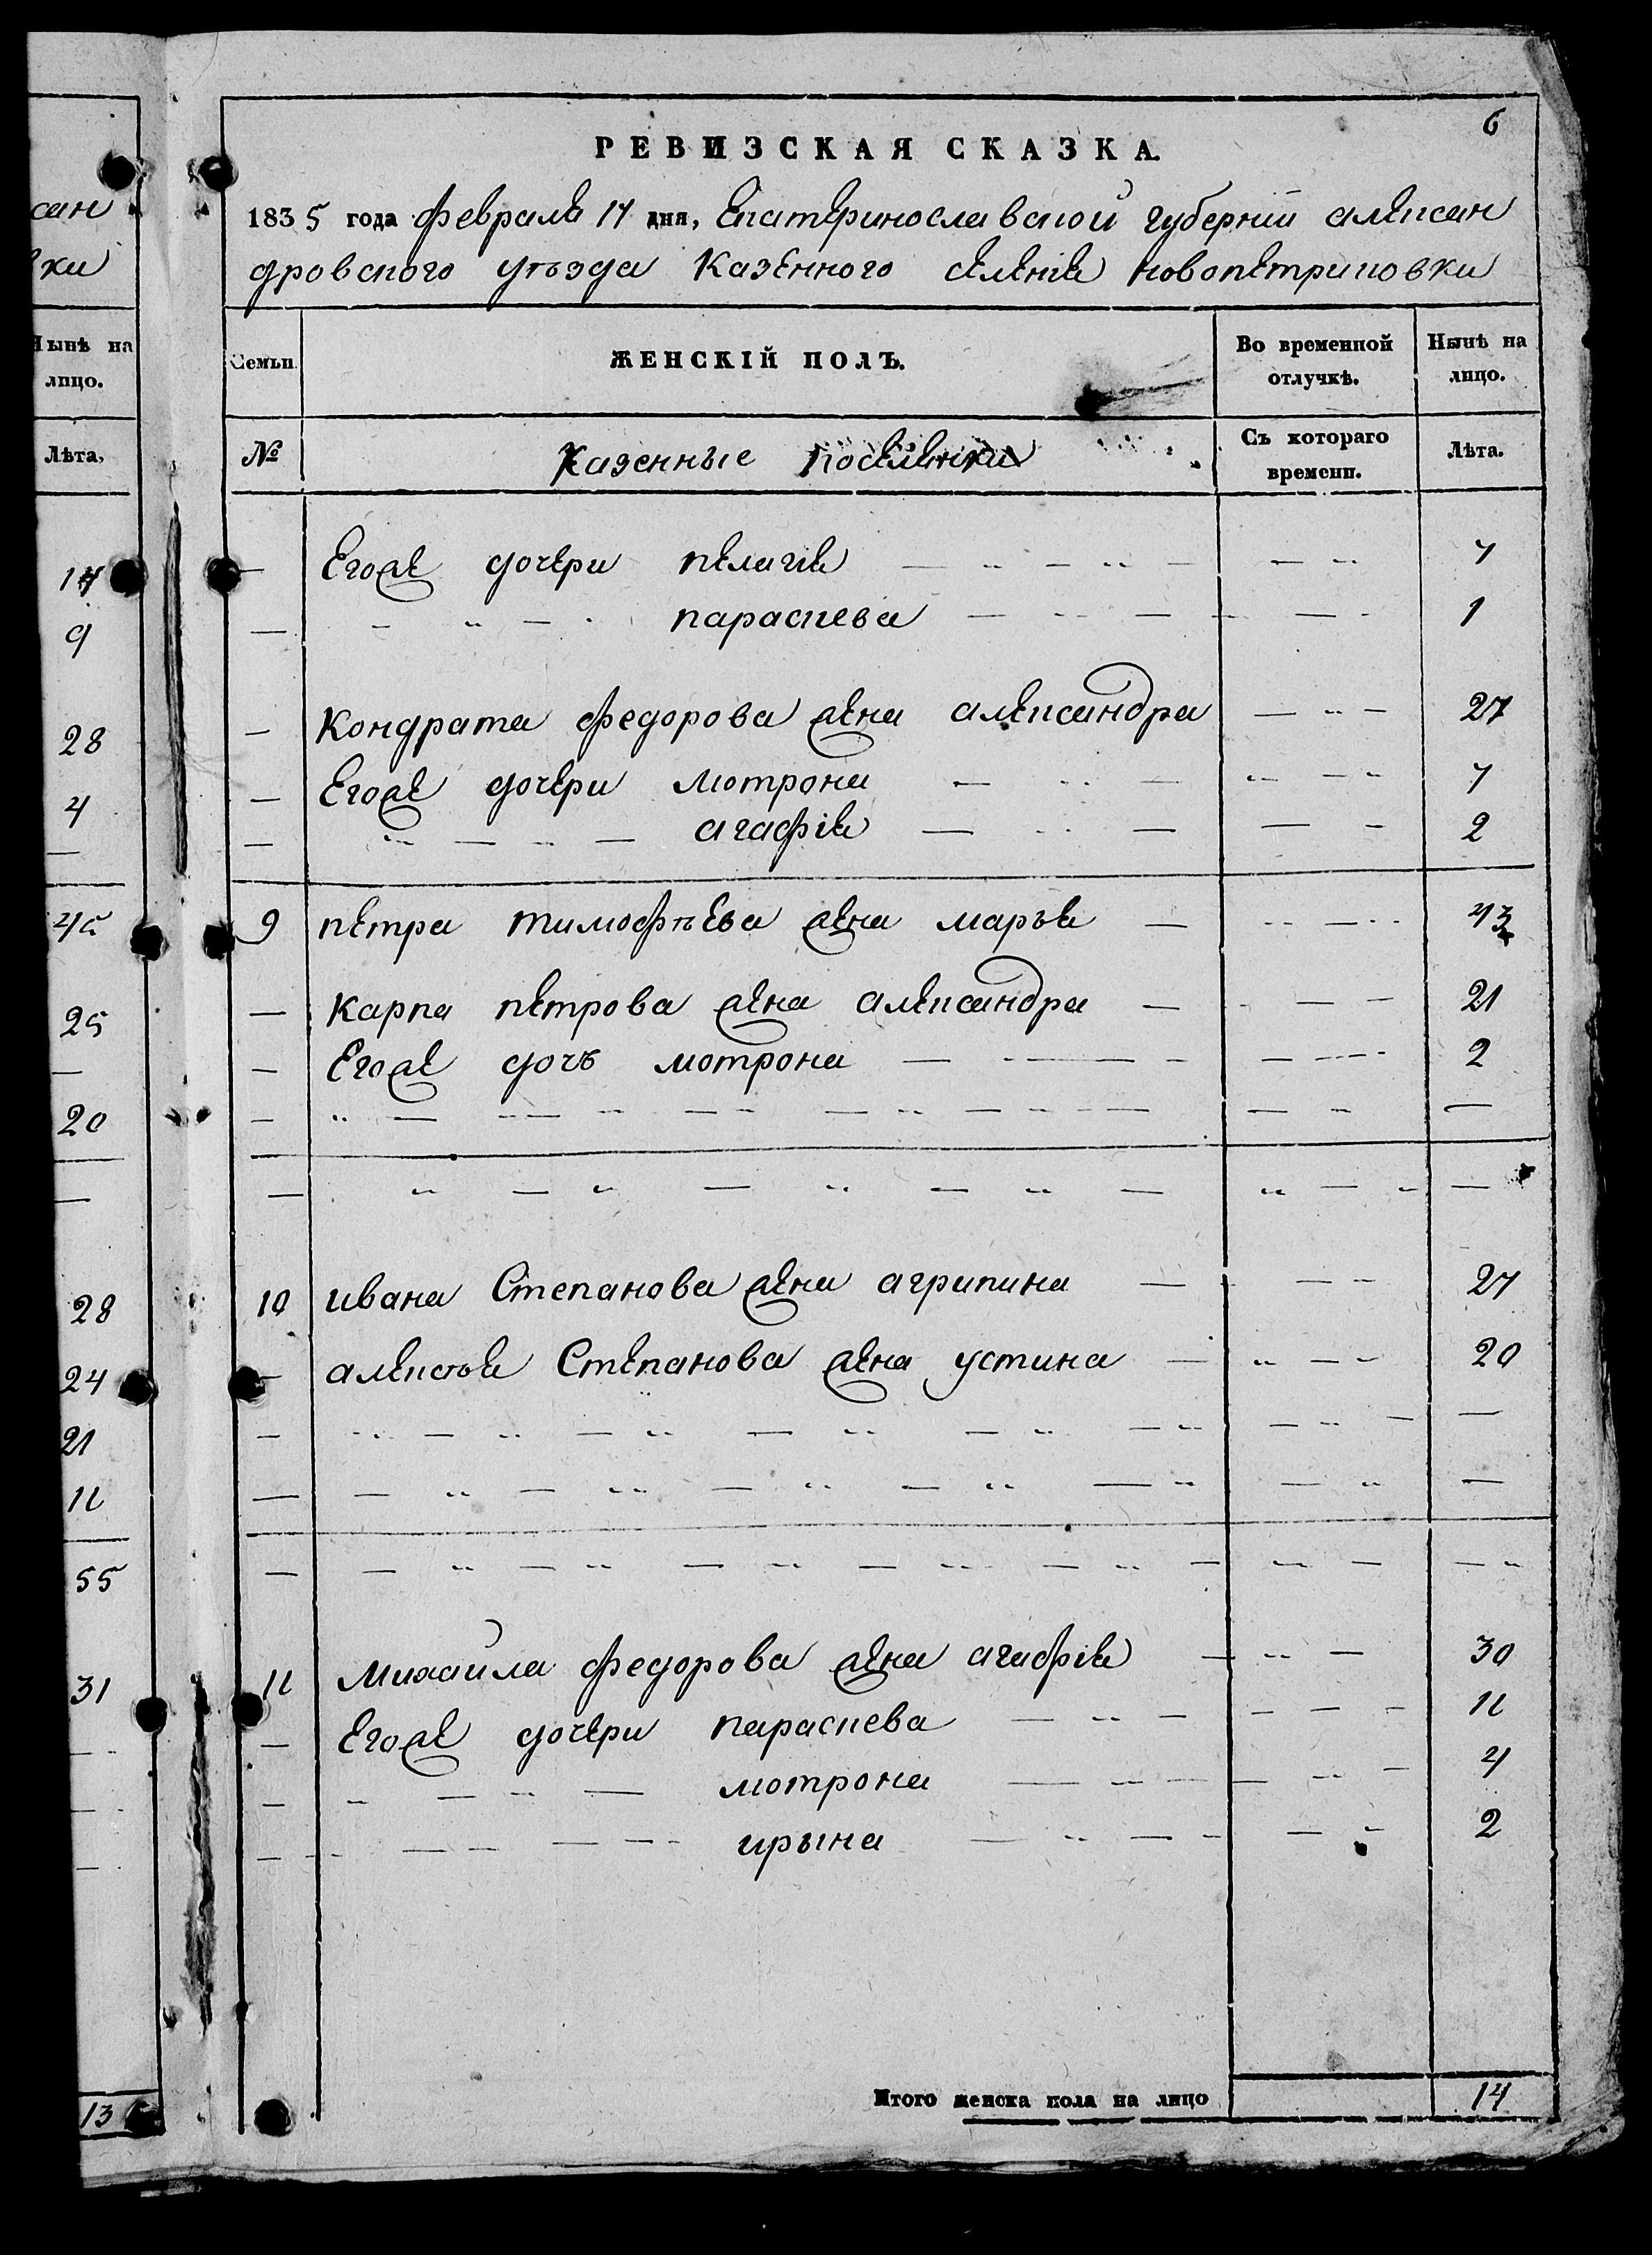 6
РЕВИЗСКАЯ СКАЗКА.
1835 года февраля 14 дня, Екатеринославской губернiи алексан
дровского уѣзда Казенного селенiя новопетриковки
Семьи.
ЖЕНСКІЙ ПОЛЪ.
Во временной отлучкѣ.
Нынѣ на лицо.
№
Казенные поселенки
Съ котораго времени.
Лѣта.
— Егоже дочери пелагiя 7
— параскева 1
— Кондрата федорова жена александра 27
— Егоже дочери мотрона 7
— агафiя 2
9 петра тимофѣева жена марья 43
— Карпа петрова жена александра 21
— Егоже дочь мотрона 2
10 ивана Степанова жена агрипина 27
— алексѣя Степанова жена устина 20
11 Михайла федорова жена агафiя 30
— Егоже дочери параскева 11
— мотрона 4
ирына 2
Итого женска пола на лицо 14
сан
ки
Нынѣ на
лицо.
Лѣта,
9
28
4
45
25
20
28
24
21
11
55
31
13